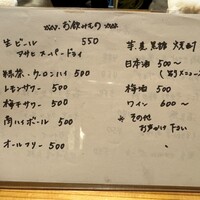 お飲みもの
生ビール 550
アサヒ スーパードライ
緑茶・ウーロンハイ 500
レモンサワー 500
梅干サワー 500
角ハイボール 500
オールフリー 500
芋、麦、黒糖 焼酎
日本酒 500〜
(別メニュー)
梅酒 500
ワイン 600〜
※その他
お声かけ下さい